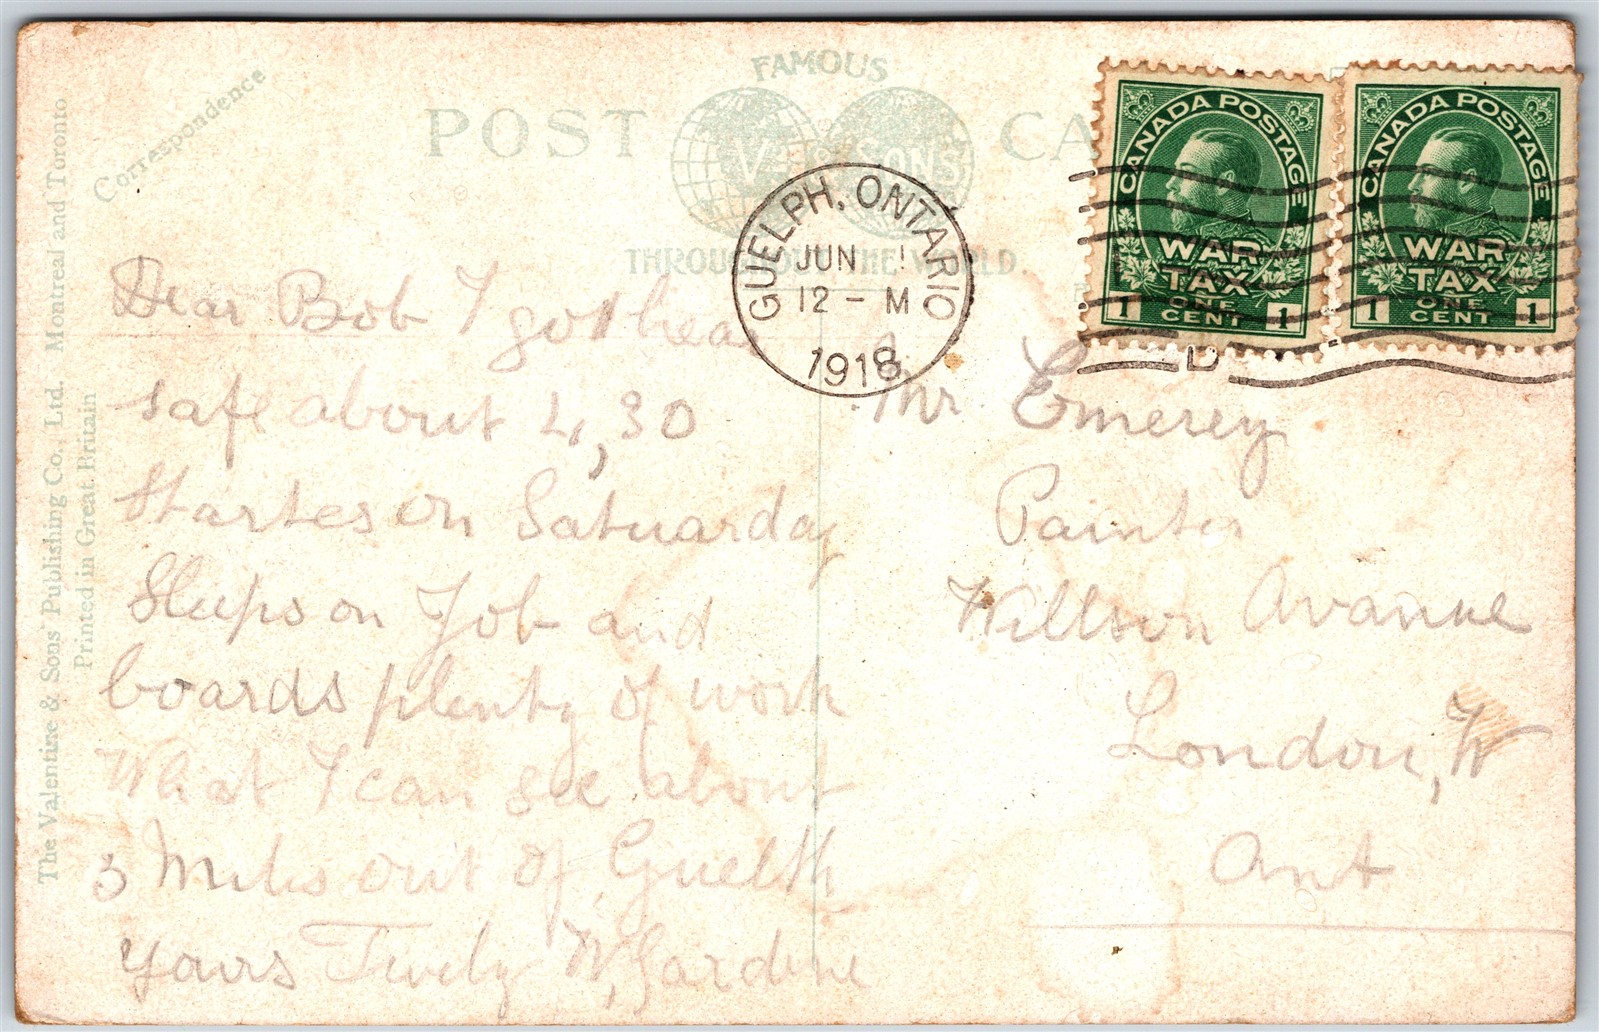 FAMOUS
POST CA
V & SONS
THROUGHOUT THE WORLD
Correspondence
The Valentine & Sons' Publishing Co., Ltd. Montreal and Toronto
Printed in Great Britain
CANADA POSTAGE
WAR
TAX
1 ONE CENT 1
CANADA POSTAGE
WAR
TAX
1 ONE CENT 1
GUELPH, ONTARIO
JUN 1
12 - M
1918
D
Dear Bob I got hea
safe about 4,30
Startes on Satuarday
Sleeps on Job and
boards plenty of work
What I can see about
3 Miles out of Guelth
yours Truely W, Gardine
Mr. Emerey
Painter
Willson Avanue
London, W
Ont